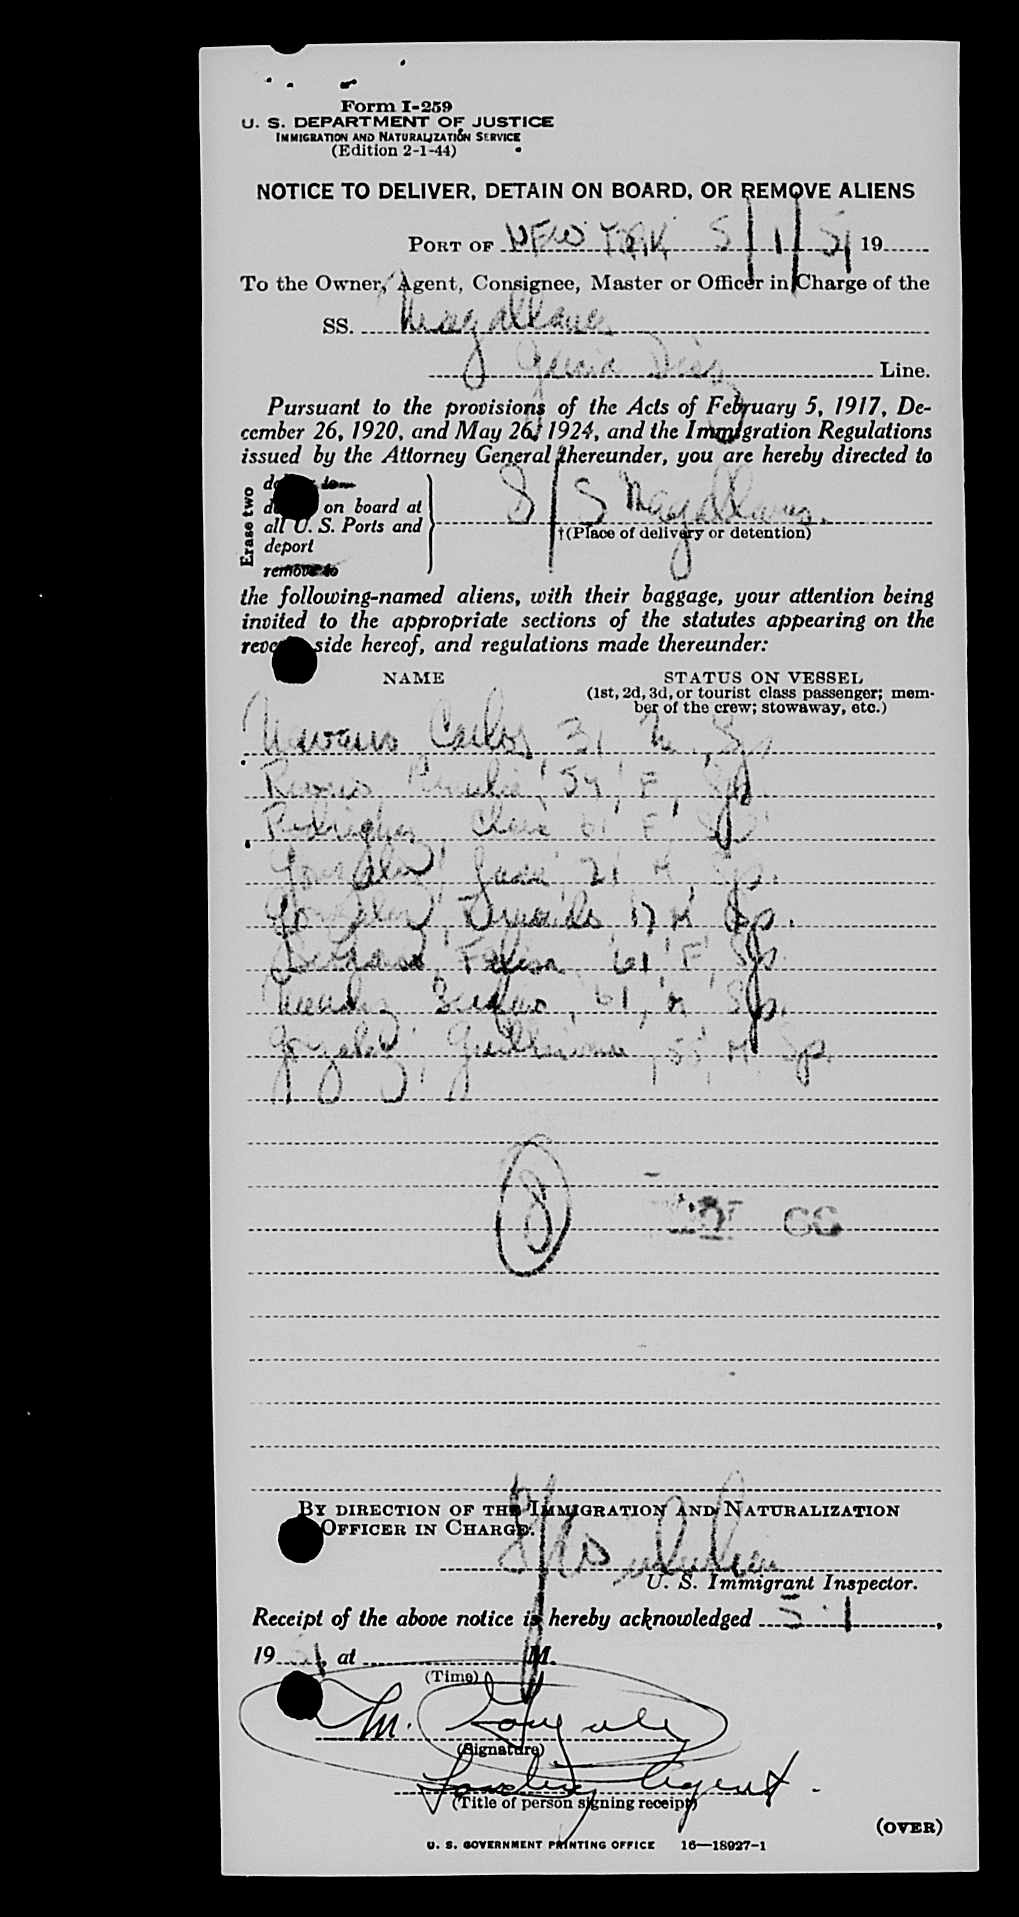 Form I-259
U. S. DEPARTMENT OF JUSTICE
IMMIGRATION AND NATURALIZATION SERVICE
(Edition 2-1-44)
NOTICE TO DELIVER, DETAIN ON BOARD, OR REMOVE ALIENS
PORT OF NEW YORK 5/1/51 19
To the Owner, Agent, Consignee, Master or Officer in Charge of the
SS. Magallanes
Garcia Diaz Line.
Pursuant to the provisions of the Acts of February 5, 1917, De-
cember 26, 1920, and May 26, 1924, and the Immigration Regulations
issued by the Attorney General thereunder, you are hereby directed to
Erase two
to
on board at
all U. S. Ports and
deport
remove to
S/S Magallanes.
†(Place of delivery or detention)
the following-named aliens, with their baggage, your attention being
invited to the appropriate sections of the statutes appearing on the
side hereof, and regulations made thereunder:
NAME
STATUS ON VESSEL
(1st, 2d, 3d, or tourist class passenger; mem-
ber of the crew; stowaway, etc.)
Carlos 31 M. Sp.
54, F, Sp.
Rodriguez 61 F, Sp.
Gonzalez, 21 M, Sp.
Gonzalez, 17 M, Sp.
61, F, Sp.
61, M, Sp.
Gonzalez, 55, M Sp.
8
BY DIRECTION OF THE IMMIGRATION AND NATURALIZATION
OFFICER IN CHARGE.
U. S. Immigrant Inspector.
Receipt of the above notice is hereby acknowledged 5-1,
19 51, at M.
(Time)
M. Gonzalez
(Signature)
Agent.
(Title of person signing receipt)
(OVER)
U. S. GOVERNMENT PRINTING OFFICE 16—18927-1